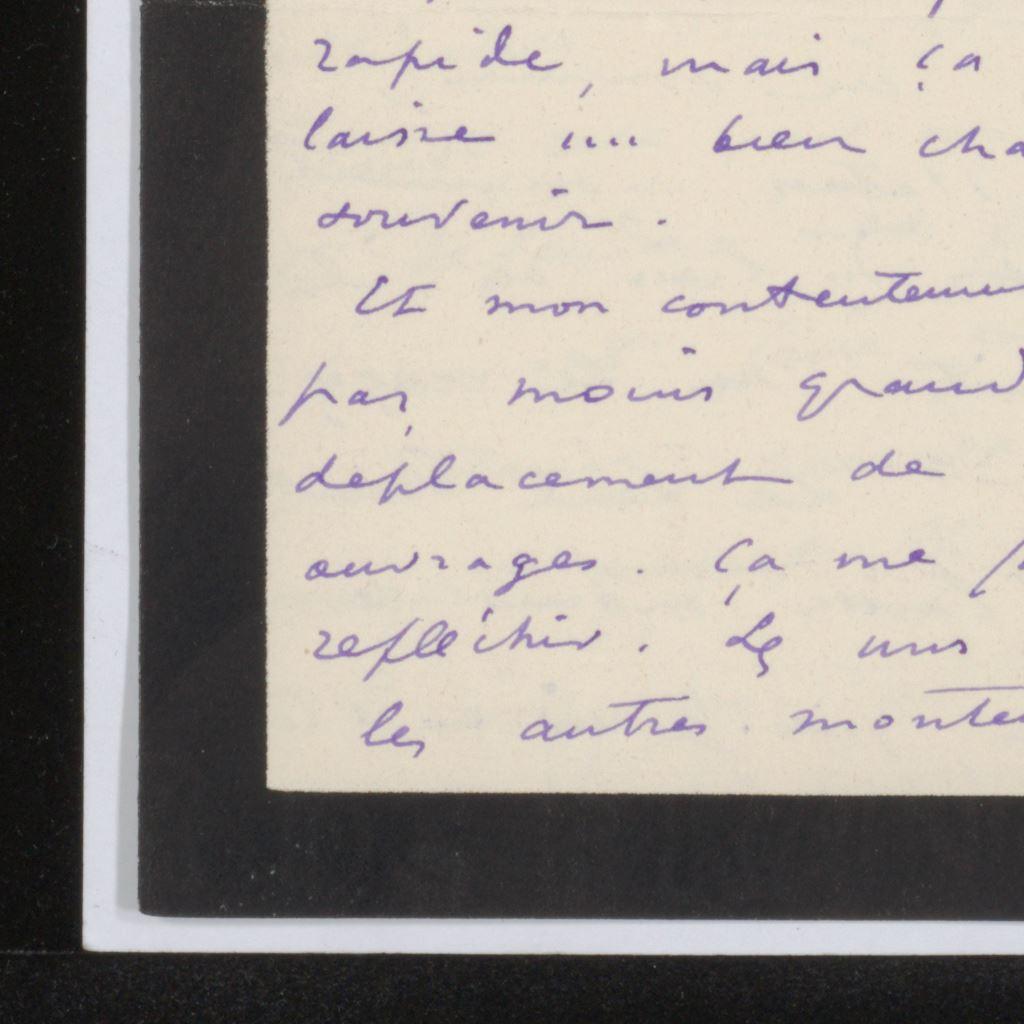 rapide, mais ça
laisse un bien cha
souvenir.
Et mon contentemen
pas moins grand
deplacement de
ouvrages. Ça me f
refléchir. Les uns
les autres monte